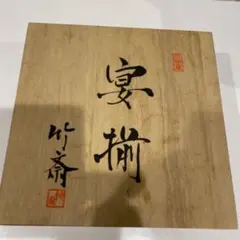 宴揃
竹斎